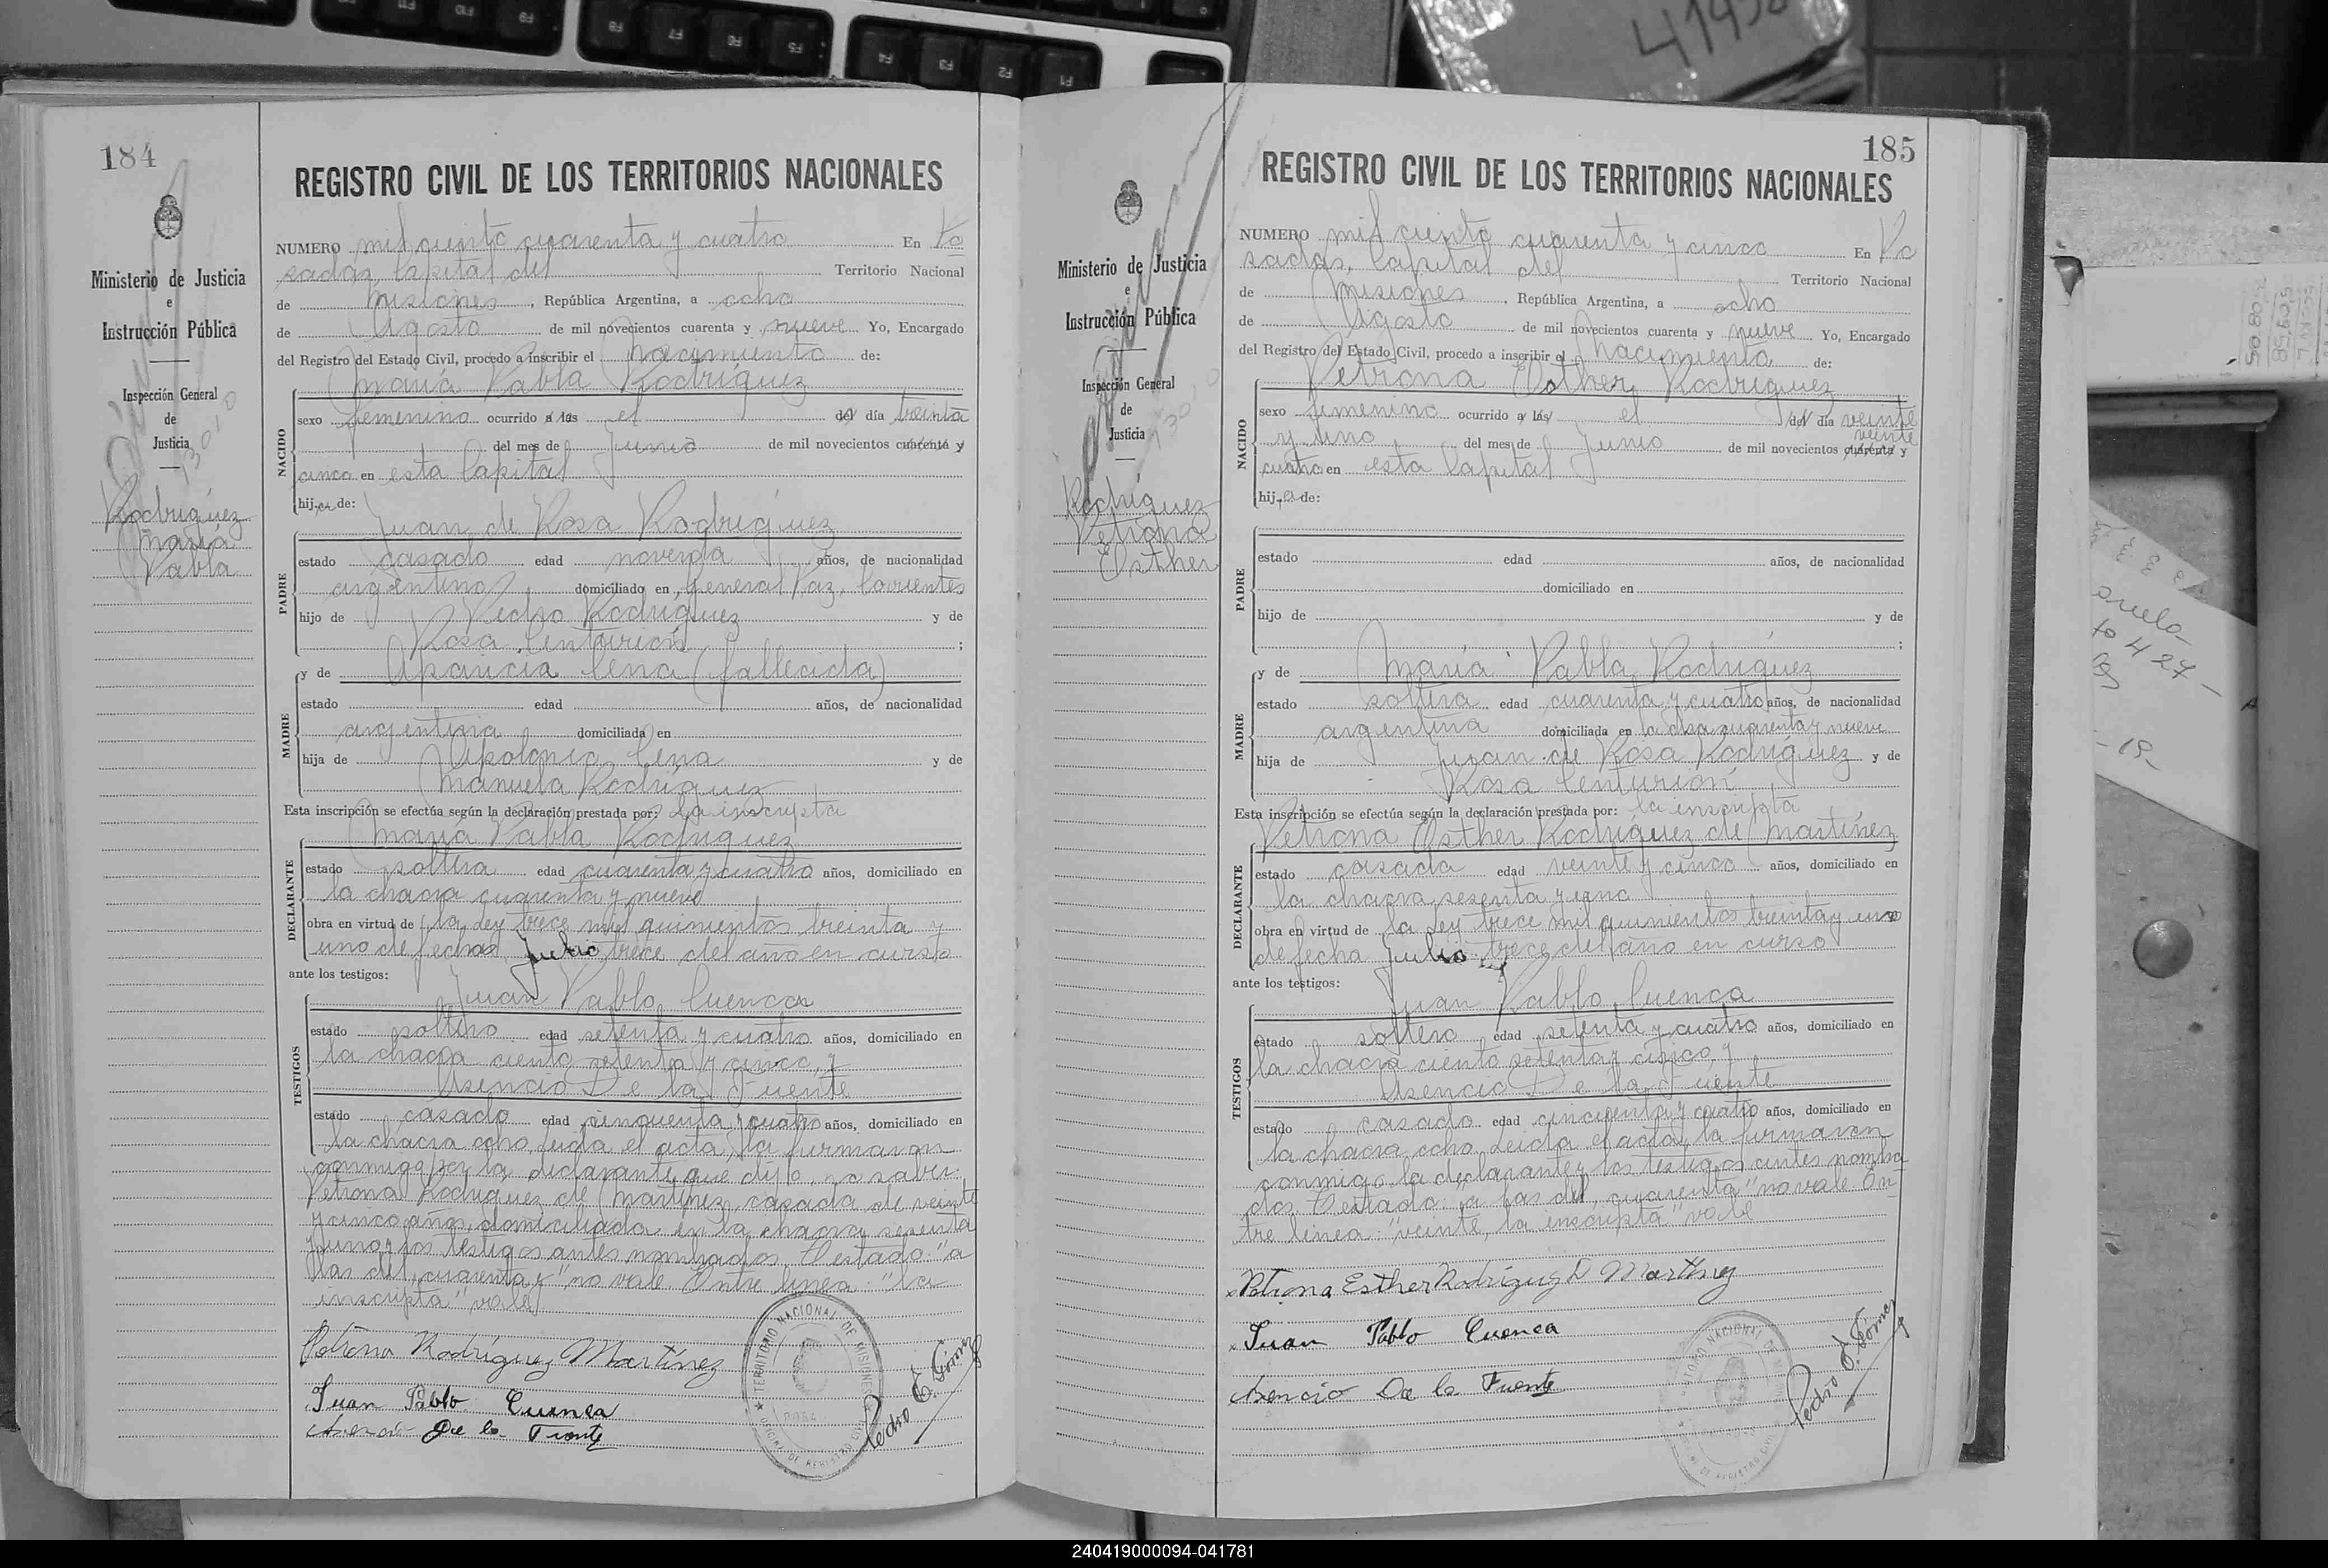 184
REGISTRO CIVIL DE LOS TERRITORIOS NACIONALES
Ministerio de Justicia
e
Instrucción Pública
Inspección General
de
Justicia
Rodríguez
María
Pabla
NUMERO mil ciento cuarenta y cuatro En Po
sadas, Capital del Territorio Nacional
de Misiones, República Argentina, a ocho
de Agosto de mil novecientos cuarenta y nueve Yo, Encargado
del Registro del Estado Civil, procedo a inscribir el nacimiento de:
María Pabla Rodríguez
NACIDO
sexo femenino ocurrido a las el del día treinta
del mes de Junio de mil novecientos cuarenta y
cinco en esta Capital
hija de:
Juan de Rosa Rodríguez
PADRE
estado casado edad noventa años, de nacionalidad
argentino domiciliado en General Paz, Corrientes
hijo de Pedro Rodríguez y de
Rosa Centurión;
y de Aparicia Cena (fallecida)
MADRE
estado edad años, de nacionalidad
argentina domiciliada en
hija de Apolonio Cena y de
Manuela Rodríguez
Esta inscripción se efectúa según la declaración prestada por: la inscripta
María Pabla Rodríguez
DECLARANTE
estado soltera edad cuarenta y cuatro años, domiciliado en
la chacra cuarenta y nueve
obra en virtud de la ley trece mil quinientos treinta y
uno de fecha Julio trece del año en curso
ante los testigos:
Juan Pablo Cuenca
TESTIGOS
estado soltero edad setenta y cuatro años, domiciliado en
la chacra ciento setenta y cinco, y
Asencio De la Fuente
estado casado edad cincuenta y cuatro años, domiciliado en
la chacra ocho. Leida el acta, la firmaron
conmigo por la declarante que dijo no saber
Petrona Rodríguez de Martínez, casada de veinte
y cinco años, domiciliada en la chacra sesenta
y uno y los testigos antes nombrados. Testado: "a
las del, cuarenta y" no vale. Entre linea: "la
inscripta" vale
Petrona Rodríguez Martínez
Juan Pablo Cuenca
Asencio De la Fuente
Pedro E. Gómez
TERRITORIO NACIONAL DE MISIONES
OFICINA DE REGISTRO CIVIL
185
REGISTRO CIVIL DE LOS TERRITORIOS NACIONALES
Ministerio de Justicia
e
Instrucción Pública
Inspección General
de
Justicia
Rodríguez
Petrona
Esther
NUMERO mil ciento cuarenta y cinco En Po
sadas, Capital del Territorio Nacional
de Misiones, República Argentina, a ocho
de Agosto de mil novecientos cuarenta y nueve Yo, Encargado
del Registro del Estado Civil, procedo a inscribir el nacimiento de:
Petrona Esther Rodríguez
NACIDO
sexo femenino ocurrido a las el del día veinte
y uno del mes de Junio de mil novecientos cuarenta veinte y
cuatro en esta Capital
hija de:
PADRE
estado edad años, de nacionalidad
domiciliado en
hijo de y de
;
y de María Pabla Rodríguez
MADRE
estado soltera edad cuarenta y cuatro años, de nacionalidad
argentina domiciliada en la chacra cuarenta y nueve
hija de Juan de Rosa Rodríguez y de
Rosa Centurión
Esta inscripción se efectúa según la declaración prestada por: la inscripta
Petrona Esther Rodríguez de Martínez
DECLARANTE
estado casada edad veinte y cinco años, domiciliado en
la chacra sesenta y uno
obra en virtud de la ley trece mil quinientos treinta y uno
de fecha Julio trece del año en curso
ante los testigos:
Juan Pablo Cuenca
TESTIGOS
estado soltero edad setenta y cuatro años, domiciliado en
la chacra ciento setenta y cinco, y
Asencio De la Fuente
estado casado edad cincuenta y cuatro años, domiciliado en
la chacra ocho. Leida el acta, la firmaron
conmigo, la declarante y los testigos antes nombra
dos. Testado: "a las del, cuarenta" no vale. En
tre linea: "veinte, la inscripta" vale
Petrona Esther Rodríguez D Martínez
Juan Pablo Cuenca
Asencio De la Fuente
Pedro E. Gómez
240419000094-041781